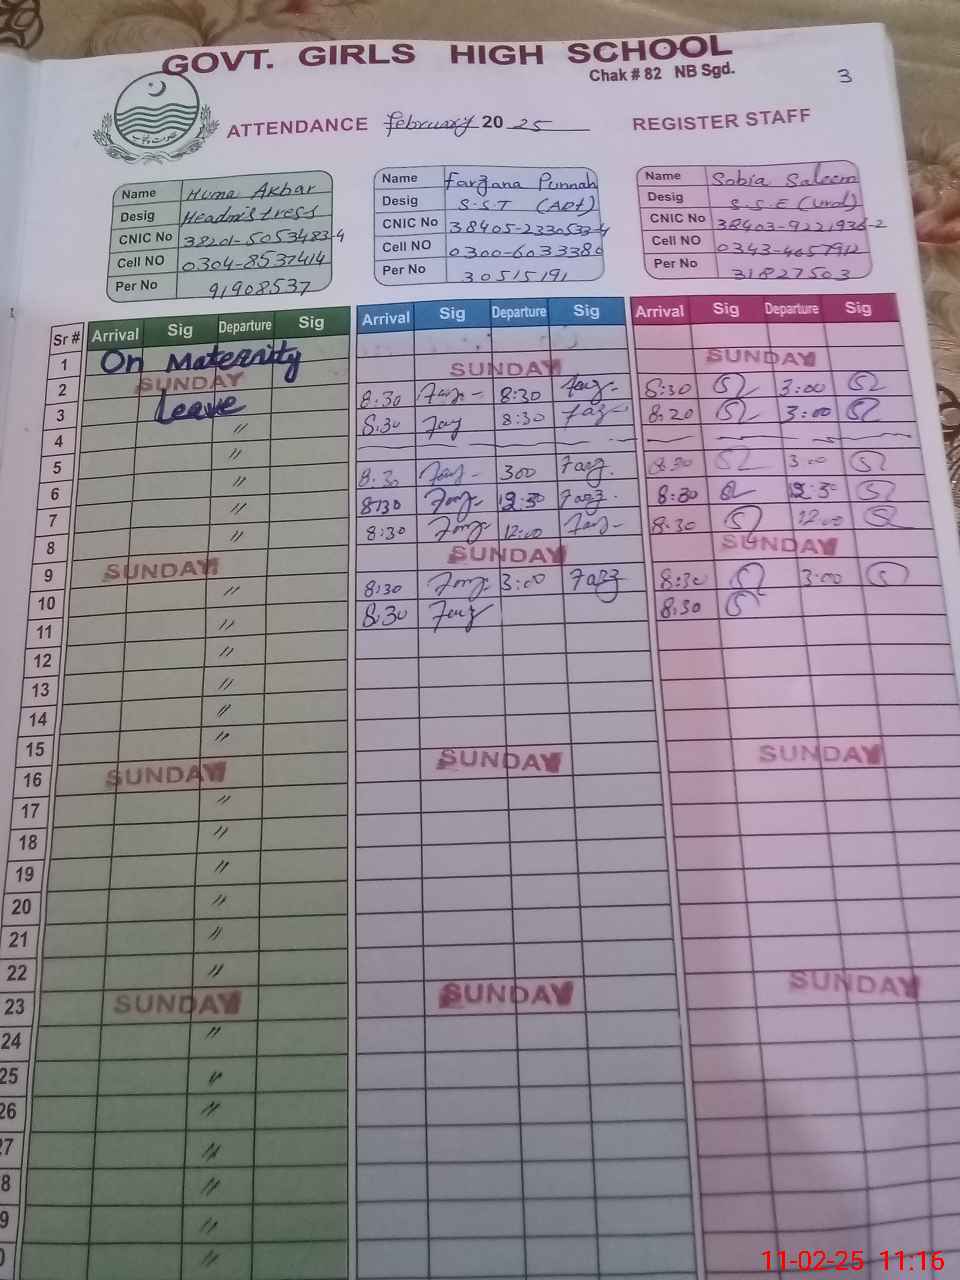 GOVT. GIRLS HIGH SCHOOL
Chak # 82 NB Sgd.
3
ATTENDANCE February 2025 REGISTER STAFF
Name Huma Akbar
Desig Headmistress
CNIC No 38201-5053483-4
Cell NO 0304-8537414
Per No 91908537
Name Farzana Punnah
Desig S.S.T (Art)
CNIC No 38405-2330533-4
Cell NO 0300-6033380
Per No 30515191
Name Sobia Saleem
Desig S.S.E (Urd)
CNIC No 38403-9221936-2
Cell NO 0343-4657912
Per No 31827503
Sr # Arrival Sig Departure Sig Arrival Sig Departure Sig Arrival Sig Departure Sig
1 On Maternity
2 SUNDAY SUNDAY SUNDAY
3 Leave 8:30 Farz 8:30 Farz 8:30 S 3:00 S
4 〃 8:30 Farz 8:30 Farz 8:20 S 3:00 S
5 〃
6 〃 8:30 Farz 300 Farz 8:30 S 3:00 S
7 〃 8:30 Farz 12:30 Farz. 8:30 S 12:30 S
8 〃 8:30 Farz 12:00 Farz 8:30 S 12:00 S
9 SUNDAY SUNDAY SUNDAY
10 〃 8:30 Farz 3:00 Farz 8:30 S 3:00 S
11 〃 8:30 Farz 8:30 S
12 〃
13 〃
14 〃
15 〃
16 SUNDAY SUNDAY SUNDAY
17 〃
18 〃
19 〃
20 〃
21 〃
22 〃
23 SUNDAY SUNDAY SUNDAY
24 〃
25 〃
26 〃
27 〃
8 〃
9 〃
0 〃
11-02-25 11:16